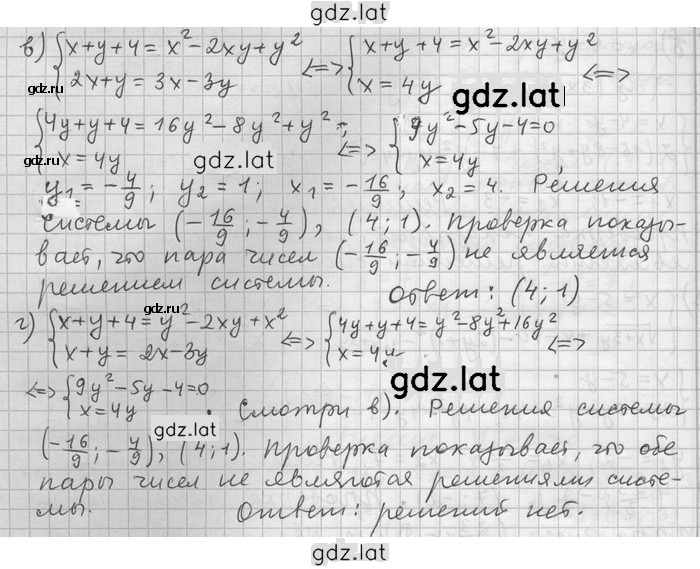 gdz.lat
в) { x+y+4 = x² - 2xy + y² <=> { x+y+4 = x² - 2xy + y² <=>
{ 2x+y = 3x-3y { x = 4y
gdz.lat
gdz.lat
{ 4y+y+4 = 16y² - 8y² + y² <=> { 9y² - 5y - 4 = 0
{ x = 4y { x = 4y
gdz.lat
y₁ = -4/9; y₂ = 1; x₁ = -16/9, x₂ = 4. Решения
системы (-16/9; -4/9), (4; 1). Проверка показы-
вает, что пара чисел (-16/9; -4/9) не является
решением системы. Ответ: (4; 1)
gdz.lat
г) { x+y+4 = y² - 2xy + x² <=> { 4y+y+4 = y² - 8y² + 16y² <=>
{ x+y = 2x-3y { x = 4y
gdz.lat
<=> { 9y² - 5y - 4 = 0
{ x = 4y . Смотри в). Решения системы
gdz.lat
(-16/9; -4/9), (4; 1). Проверка показывает, что обе
пары чисел не являются решениями систе-
мы. Ответ: решений нет.
gdz.lat